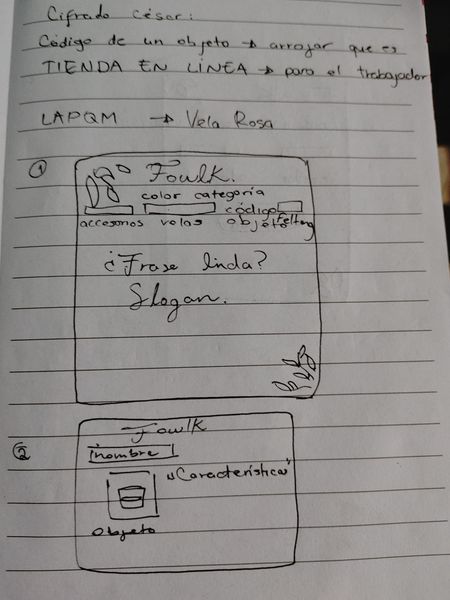 Cifrado César:
Código de un objeto → arrojar que es
TIENDA EN LÍNEA → para el trabajador
LAPQM → Vela Rosa
①
Foulk.
color categoría
código
accesorios velas objeto Felting
¿Frase linda?
Slogan.
②
Foulk
nombre
"Característica"
Objeto